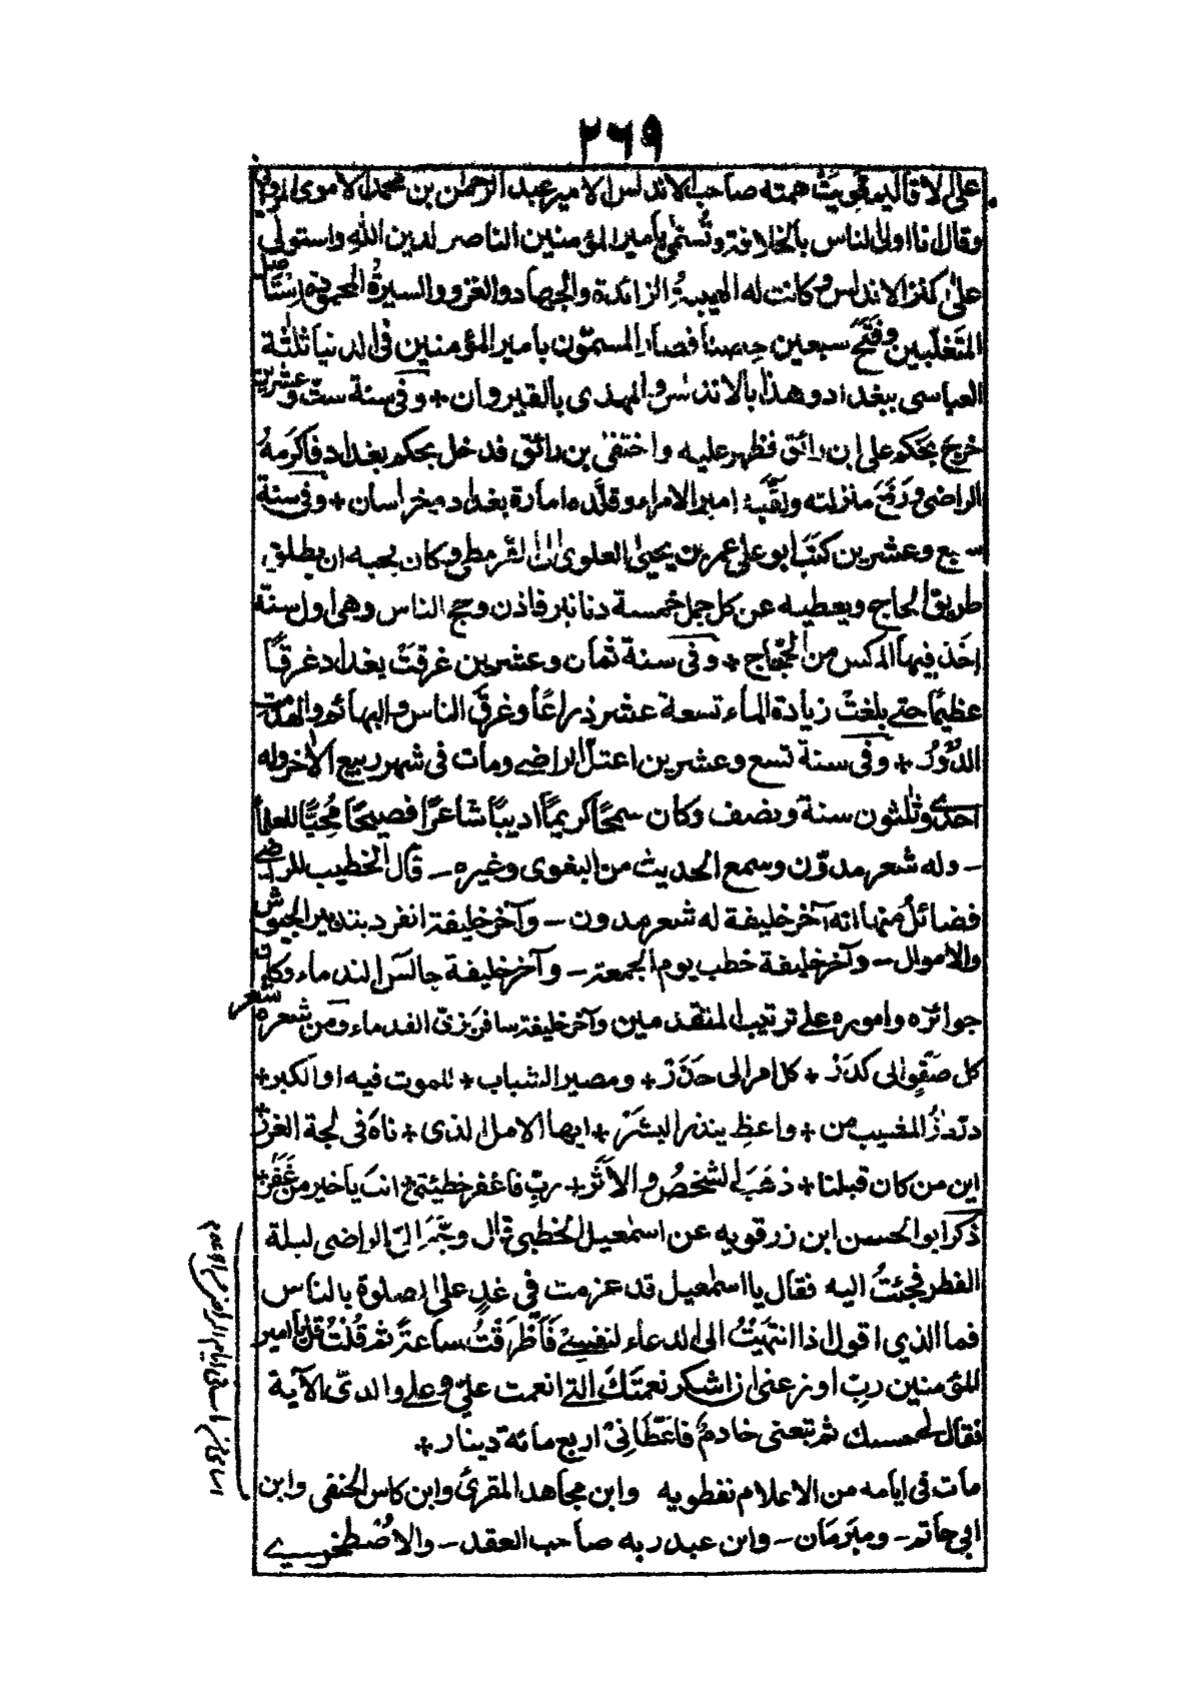 ٢٦٩
على الاقاليم قويت همته صاحب الاندلس الامير عبد الرحمٰن بن محمد الاموى المروانى
وقال انا اولى الناس بالخلافة وتُسمّٰى بأمير المؤمنين الناصر لدين اللّٰه واستولى
علٰى اكثر الاندلس وكانت له الهيبةُ الزائدة والجهاد والغزو والسيرةُ المحمودة استأصل
المتغلّبين وفَتَحَ سبعين حِصنا فصار المسمّون بأمير المؤمنين فى الدنيا ثلٰثة
العباسى ببغداد وهذا بالاندلس والمهدى بالقيروان + وفى سنة ستّ وعشرين
خرج بَحكم على ابن رائق فظهر عليه واختفٰى بن رائق فدخل بحكم بغداد فاكرمهُ
الراضى ورَفَعَ منزلته ولقَّبَه امير الامراء وقلّده امارة بغداد وخراسان + وفى سنة
سبع وعشرين كتَبَ ابو على عمر بن يحيىٰ العلوى الى القرمطى وكان يحبه ان يطلق
طريق الحاج ويعطيه عن كل جمل خمسة دنانير فاذن وحج الناس وهى اول سنة
اخذ فيها المكس من الحُجّاج + وفى سنة ثمان وعشرين غرقتْ بغداد غرقًا
عظيمًا حتے بلغتْ زيادة الماء تسعة عشر ذراعًا وغرق الناس والبهائم وانهدمت
الدُّوْرُ + وفى سنة تسع وعشرين اعتلّ الراضے ومات فى شهر ربيع الاٰخر وله
احدے وثلٰثون سنة ونصف وكان سمحًا كريمًا اديبًا شاعرًا فصيحًا مُحِبًّا للعلماء
ـ وله شعر مدوّن وسمع الحديث من البغوى وغيره ـ قال الخطيب للراضے
فضائلُ منها انه آخر خليفة له شعر مدون ـ وآخر خليفة انفرد بتدبير الجيوش
والاموال ـ وآخر خليفة خطب يوم الجمعة ـ وآخر خليفة جالَسَ الندماء وكانت
جوائزه واموره علے ترتيب المتقدمين وآخر خليفة سافر بزىّ القدماء ومن شعره شعر
كل صَفْوٍ الى كدَرْ + كل امر الى حَذَرْ + ومصير الشباب + للموت فيه او الكبر +
درّ درُّ المشيب من + واعظِ ينذر البشَرْ + ايها الامل الذى + تاهَ فى لجة الغرر +
اين من كان قبلنا + ذهَبَ الشخصُ والأَثَرْ + ربِّ فاغفر خطيئتى انتَ ياخير من غَفَرْ +
ذكر ابو الحسن ابن زرقويه عن اسمٰعيل الخطبى قال وجَّهَ الىّ الراضى ليلة
الفطر فجئتُ اليه فقال يا اسمٰعيل قد عزمت فى غدٍ على الصلوة بالناس
فما الذي اقول اذا انتهيْتُ الى الدعاء لنفسے فَأَطْرَقْتُ ساعةً ثم قُلْتُ قل يا امير
المؤمنين ربِّ اوزعنى ان اشكر نعمتكَ التے انعمت علىّ وعلے والدىّ الآية
فقال لى حسبك ثم تبعنى خادمٌ فأعْطَانِىْ اربع مائة دينار +
مات فى ايامه من الاعلام نفطويه وابن مجاهد المقرئ وابن كاس الحنفى وابن
ابى حاتم ـ ومبرمان ـ وابن عبد ربه صاحب العقد ـ والاصْطخرے